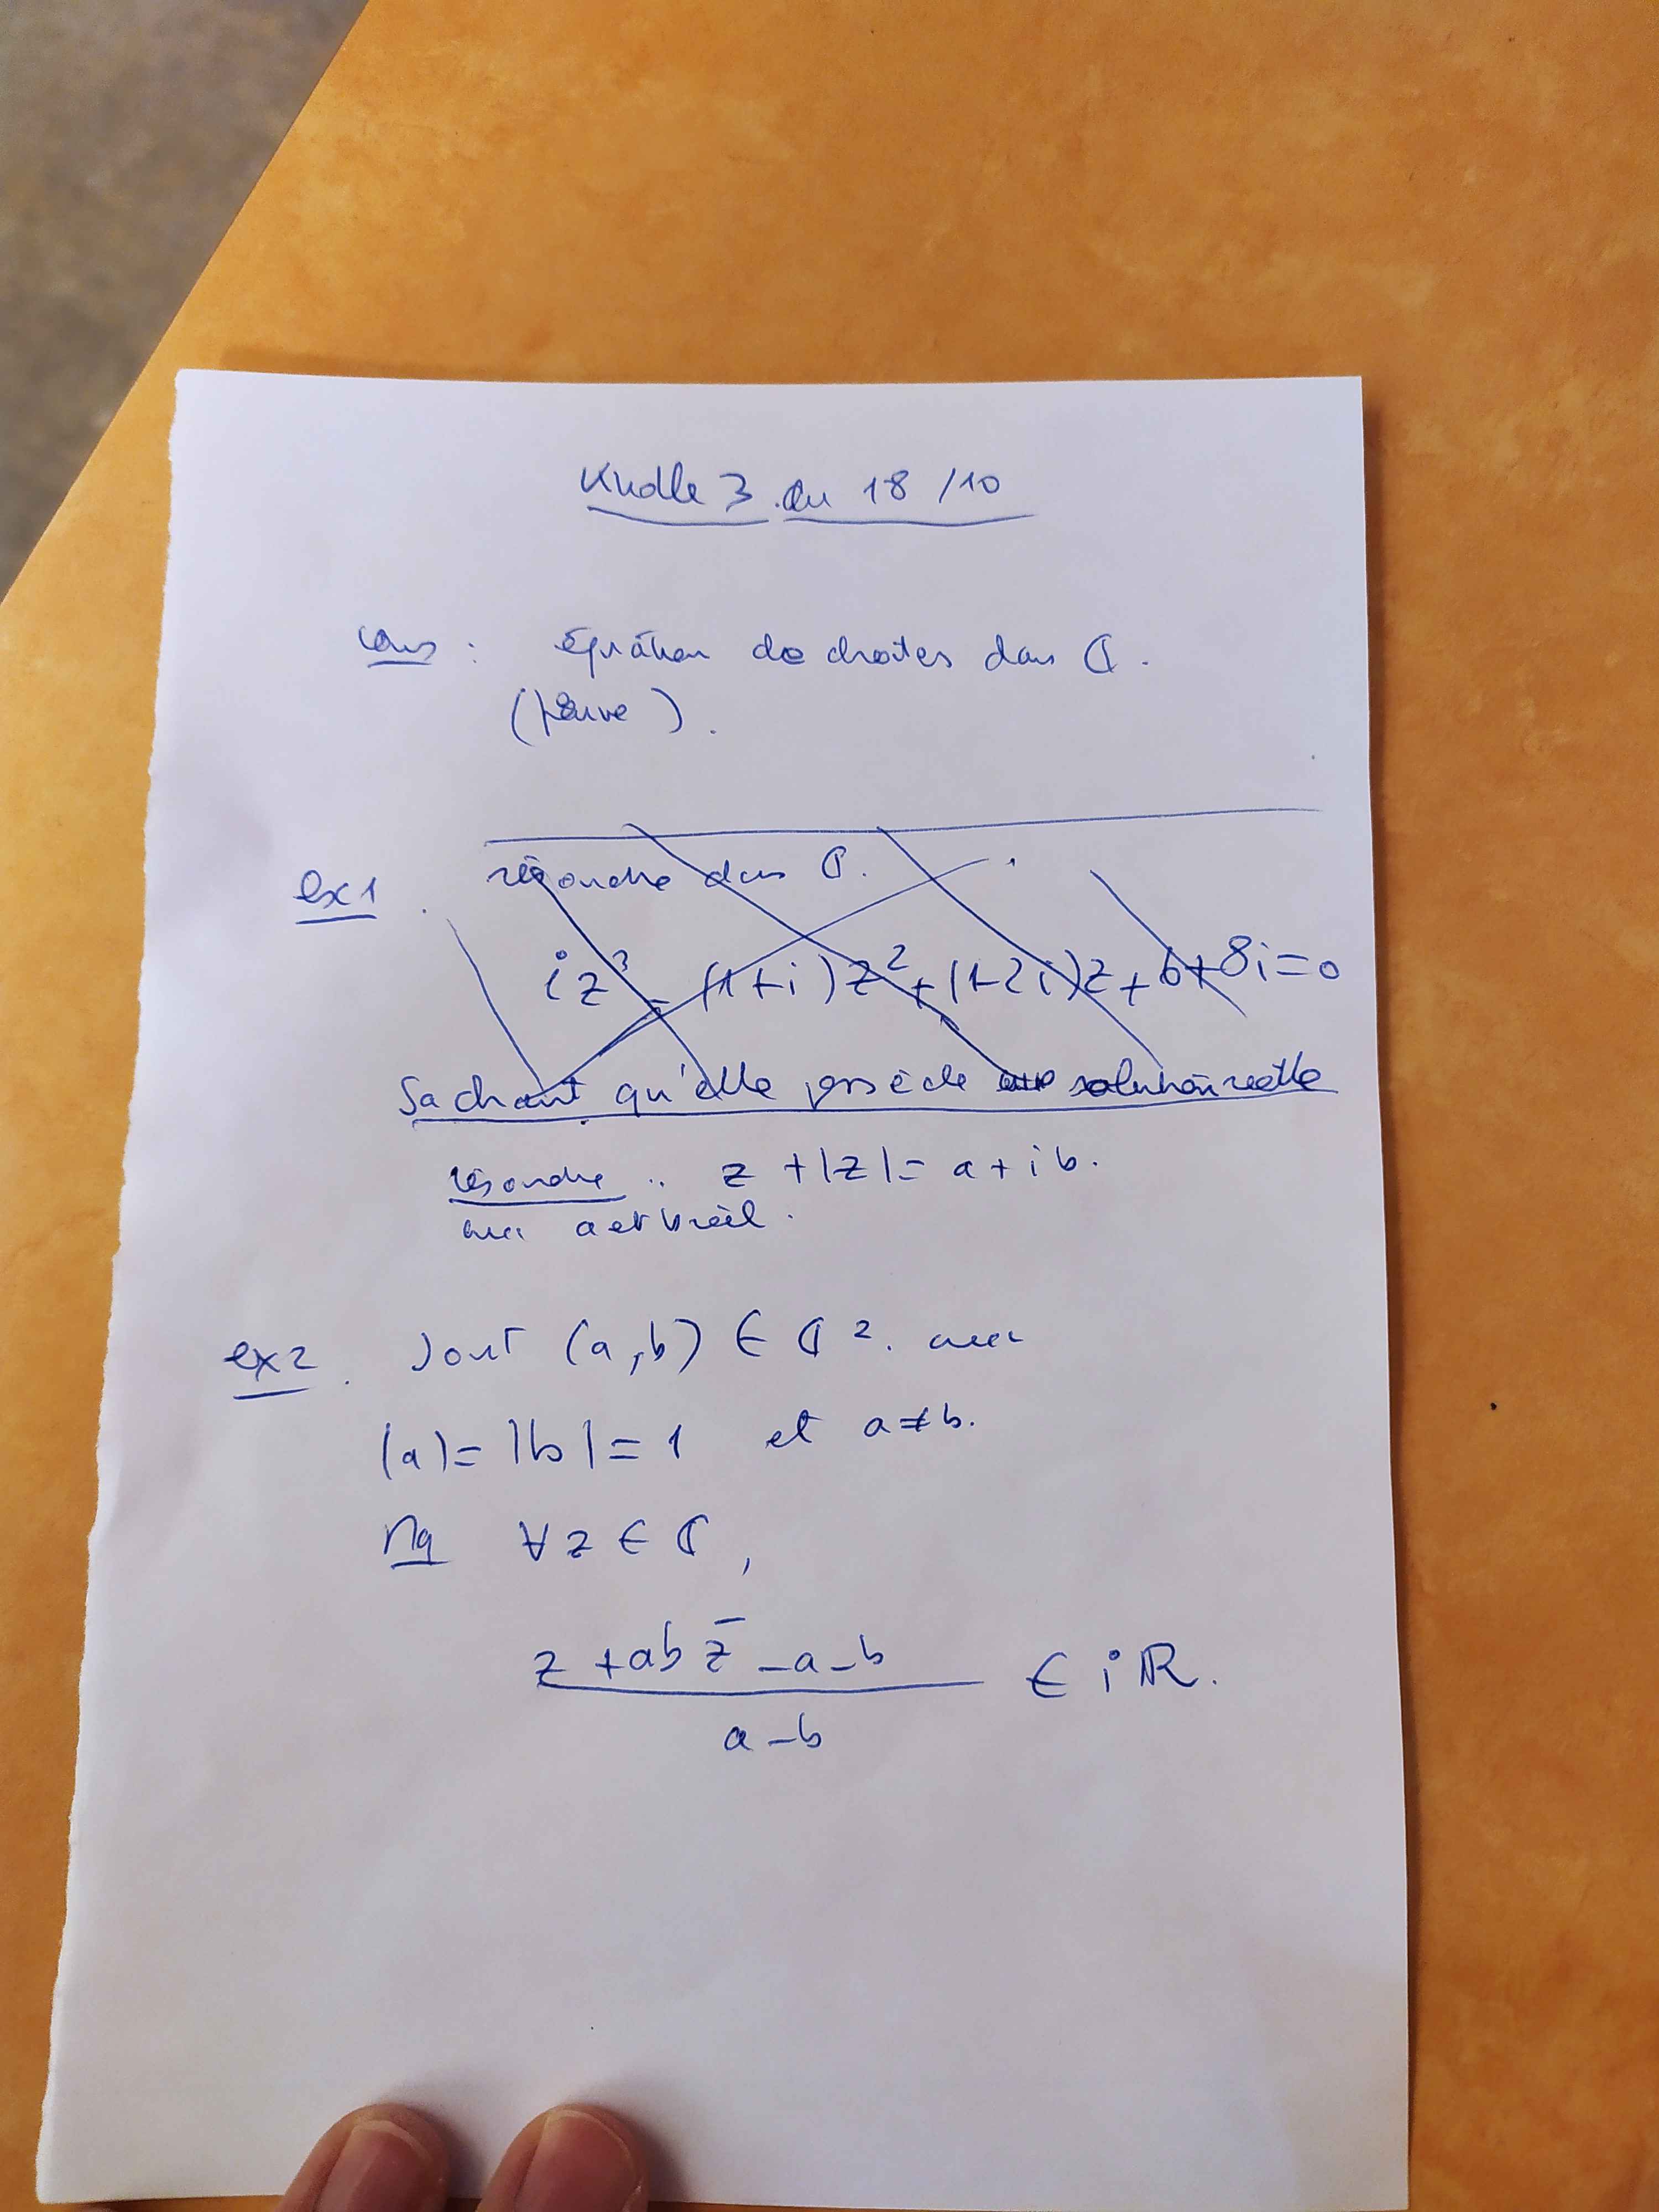 Kholle 3 du 18/10
cours : équation de droites dans ℂ.
(preuve).
ex1. résoudre dans ℂ.
iz³ - (1+i)z² + (1+2i)z + 6+8i=0
Sachant qu'elle possède une solution réelle
résoudre : z + |z| = a + ib.
avec a et b réel.
ex2. Soit (a,b) ∈ ℂ². avec
|a| = |b| = 1 et a≠b.
Mq ∀z ∈ ℂ,
z + ab z̄ - a - b
———————— ∈ iℝ.
a - b